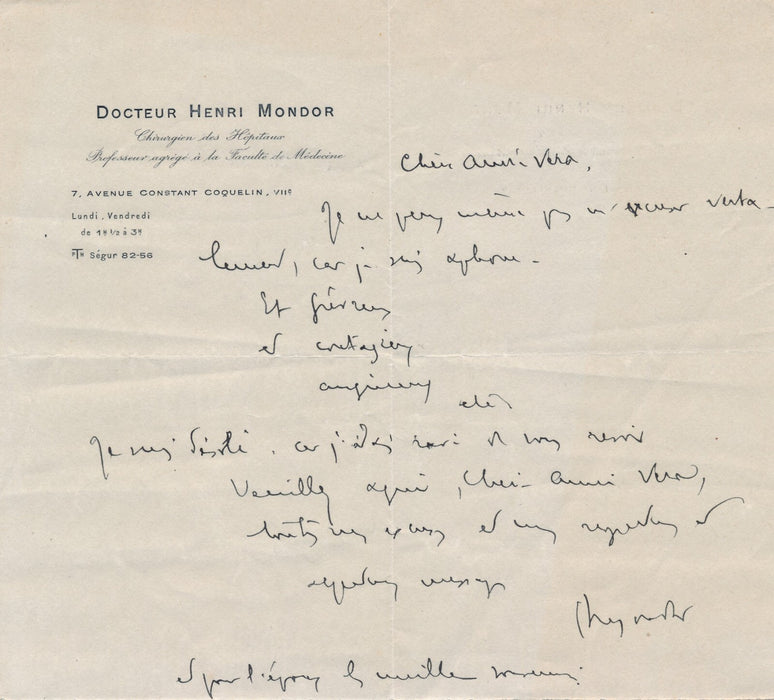 DOCTEUR HENRI MONDOR
Chirurgien des Hôpitaux
Professeur agrégé à la Faculté de Médecine
7, AVENUE CONSTANT COQUELIN, VIIe
Lundi, Vendredi
de 1H 1/2 à 3H
TH Ségur 82-56
Cher Ami Vera,
Je ne peux même pas m'excuser verba-
lement, car je suis aphone.
Et fiévreux
et contagieux
angineux
etc
Je suis désolé, car j'étais ravi de vous revoir
Veuillez agréer, Cher Ami Vera,
toutes mes excuses et mes et
Mondor
et pour l'épouse les meilleurs